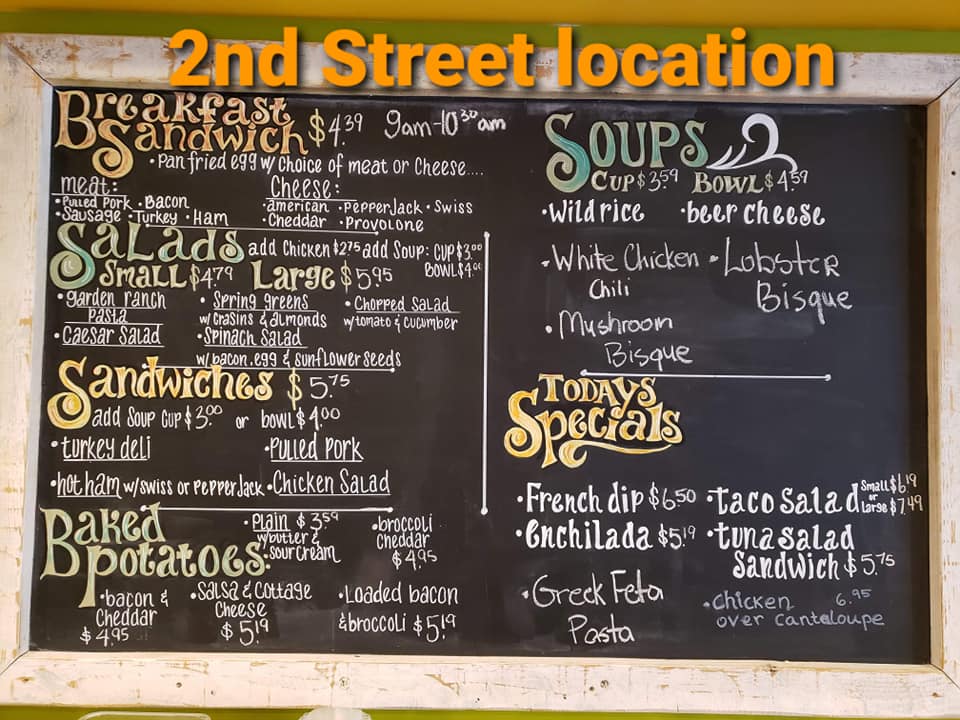 2nd Street location
Breakfast
Sandwich $4.39 9am-10:30am
•Pan fried egg w/ choice of meat or Cheese....
meat:
•Pulled Pork •Bacon
•Sausage •Turkey •Ham
Cheese:
•american •PepperJack •Swiss
•Cheddar •Provolone
Salads add Chicken $2.75 add Soup: CUP $3.00
BOWL $4.00
Small $4.79 Large $5.95
•garden ranch
pasta
•Spring greens
w/ crasins & almonds
•Chopped Salad
w/tomato & cucumber
•Caesar Salad
•Spinach Salad
w/ bacon.egg & sunflower seeds
Sandwiches $5.75
add Soup Cup $3.00 or bowl $4.00
•turkey deli •Pulled Pork
•hot ham w/swiss or PepperJack •Chicken Salad
Baked
potatoes:
•Plain $3.59
w/butter &
sour cream
•broccoli
cheddar
$4.95
•bacon &
cheddar
$4.95
•Salsa & Cottage
Cheese
$5.19
•Loaded bacon
& broccoli $5.19
Soups
Cup $3.59 Bowl $4.59
•Wild rice •beer cheese
•White Chicken
Chili
•Lobster
Bisque
•Mushroom
Bisque
Todays
Specials
•French dip $6.50
•taco salad Small $6.19
or
Large $7.49
•Enchilada $5.19
•tuna salad
Sandwich $5.75
•Greek Feta
Pasta
•Chicken 6.95
over cantaloupe